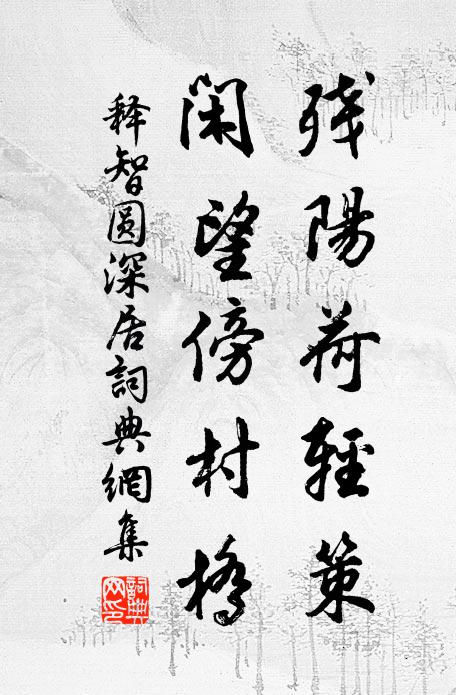 残陽荷輕策
閑望傍村橋
释智圓深居詞典網集
詞典網印